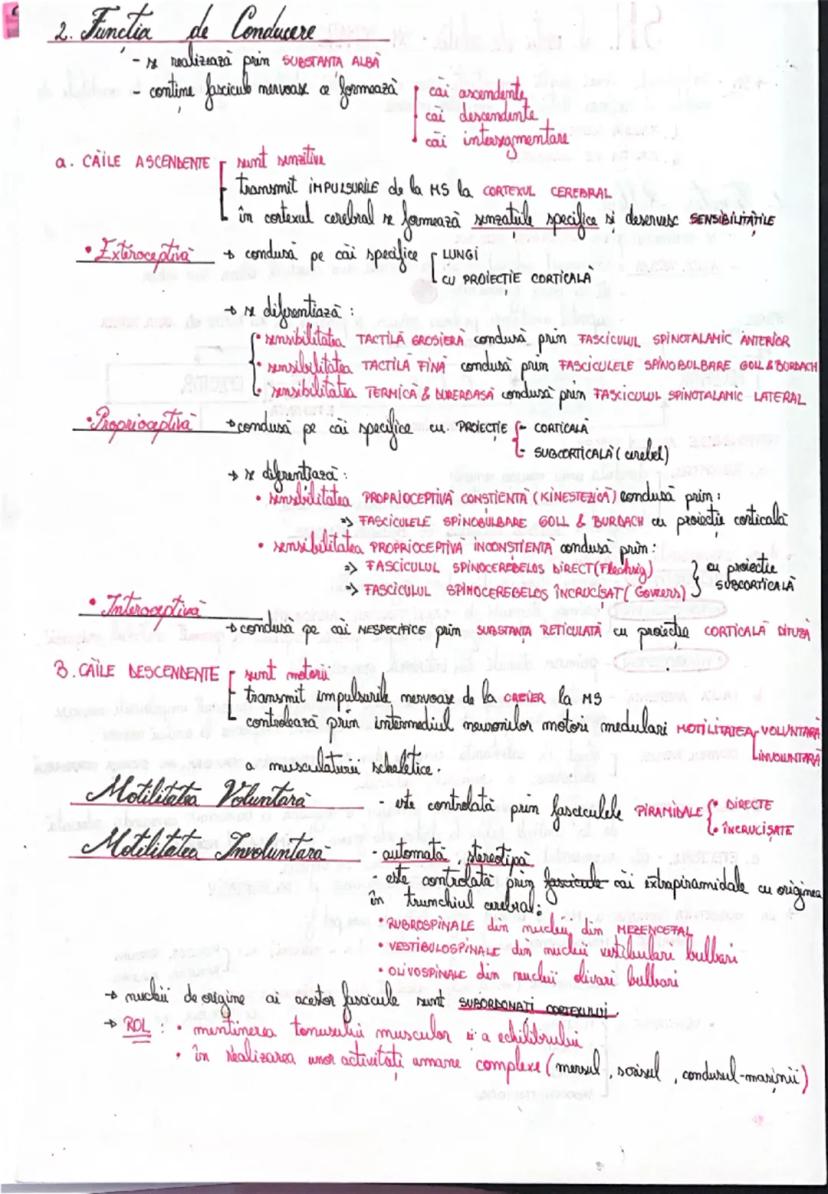 2. Functia de Conducere
- se realizează prin SUBSTANTA ALBĂ
- contine fascicule nervoase ce formează
• căi ascendente
căi descendente
• căi intersegmentare
a. CĂILE ASCENDENTE
sunt senzitive
transmit IMPULSURILE de la MS la CORTEXUL CEREBRAL
în cortexul cerebral se formează senzatiile specifice si deservesc SENSIBILITĂTILE
• Exteroceptivă → condusă pe căi specifice
LUNGI
CU PROIECTIE CORTICALĂ
→ se diferentiază :
• sensibilitatea TACTILĂ GROSIERĂ condusă prin FASCICULUL SPINOTALAMIC ANTERIOR
• sensibilitatea TACTILĂ FINĂ condusă prin FASCICULELE SPINOBULBARE GOLL & BURDACH
• sensibilitatea TERMICĂ & DUREROASĂ condusă prin FASCICULUL SPINOTALAMIC LATERAL
• Proprioceptivă → condusă pe căi specifice cu PROIECTIE
- CORTICALĂ
- SUBCORTICALĂ (cerebel)
→ se diferentiază :
• sensibilitatea PROPRIOCEPTIVĂ CONSTIENTĂ (KINESTEZICĂ) condusă prin :
=> FASCICULELE SPINOBULBARE GOLL & BURDACH cu proiectie corticală
• sensibilitatea PROPRIOCEPTIVĂ INCONSTIENTĂ condusă prin :
=> FASCICULUL SPINOCEREBELOS DIRECT (Flechsig)
=> FASCICULUL SPINOCEREBELOS ÎNCRUCISAT (Gowers)
cu proiectie
SUBCORTICALĂ
• Interoceptivă
→ condusă pe căi NESPECIFICE prin SUBSTANTA RETICULATĂ cu proiectie CORTICALĂ DIFUZĂ
B. CĂILE DESCENDENTE
sunt motorii
transmit impulsurile nervoase de la CREIER la MS
controlează prin intermediul neuronilor motori medulari MOTILITATEA
VOLUNTARĂ
INVOLUNTARĂ
a musculaturii scheletice.
Motilitatea Voluntară - este controlată prin fasciculele PIRAMIDALE
• DIRECTE
• ÎNCRUCIȘATE
Motilitatea Involuntară - automată, stereotipă
- este controlată prin fascicule căi extrapiramidale cu originea
în trunchiul cerebral :
• RUBROSPINALE din nucleii din MEZENCEFAL
• VESTIBULOSPINALE din nucleii vestibulari bulbari
• OLIVOSPINALE din nucleii olivari bulbari
→ nucleii de origine ai acestor fascicule sunt SUBORDONATI CORTEXULUI
→ ROL : • mentinerea tonusului muscular si a echilibrului
• în realizarea unor activităti umane complexe (mersul, scrisul, condusul-masinii)